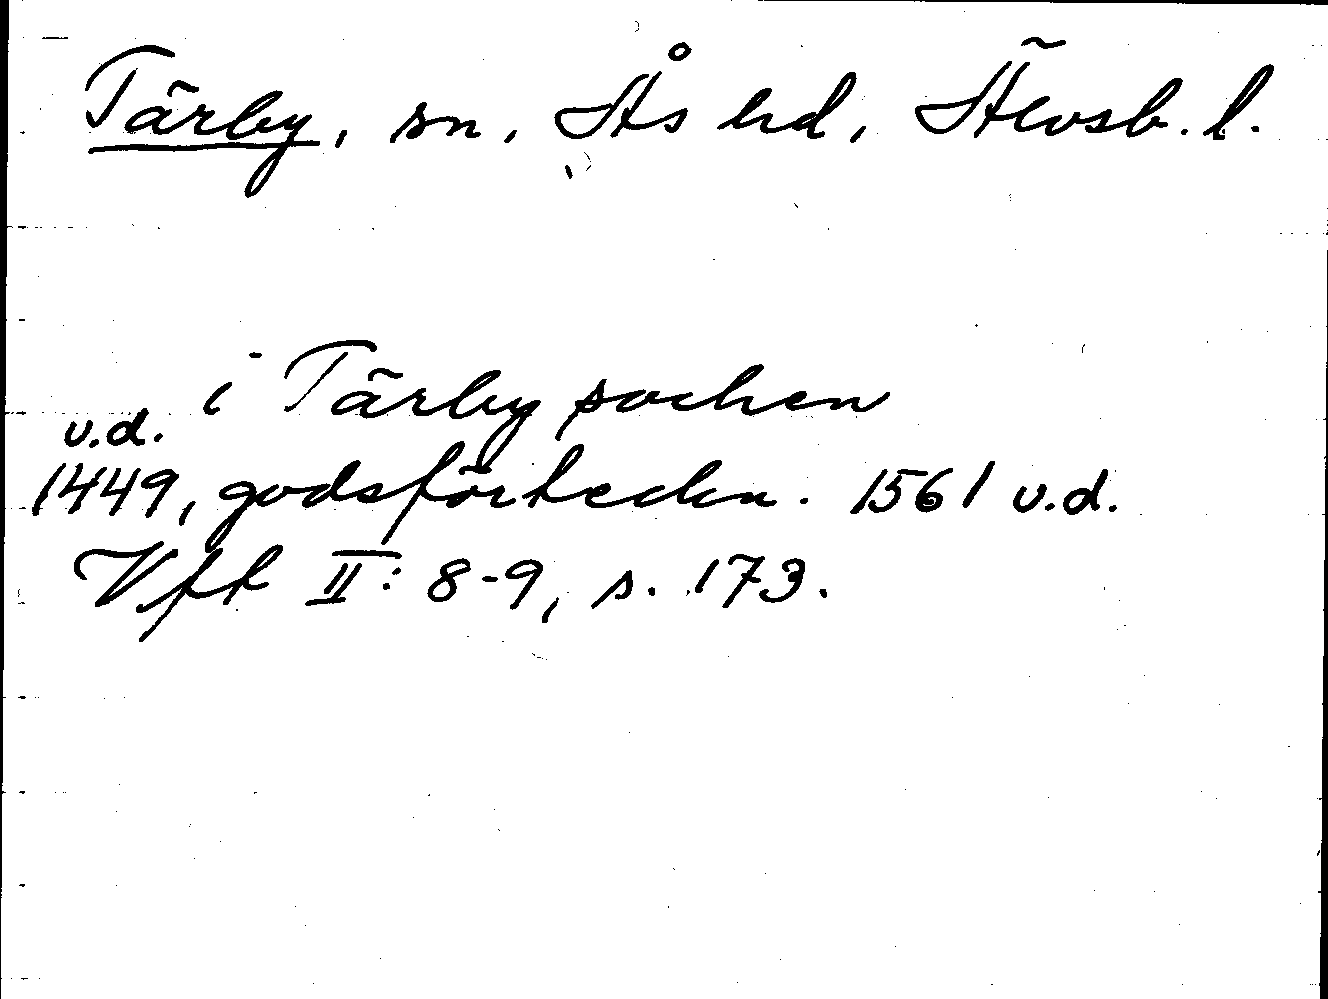 Tärby, sn, Ås hd, Älvsb. l.
i Tärby sochen
u.d.
1449, godsförteckn. 1561 u.d.
Vft II: 8-9, s. 173.